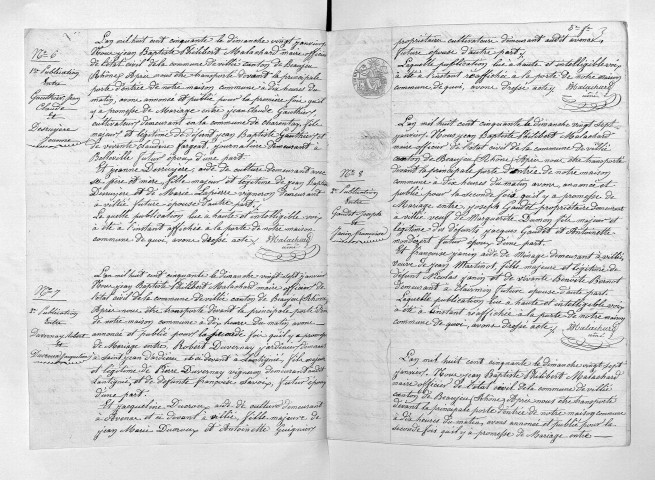 N° 6
1re Publication
Entre
Gauthier Jean
Claude
et
Desruyère
Jeanne
L'an mil huit cent cinquante le dimanche vingt janvier
Nous jean Baptiste Philibert Malachard maire officier
de l'état civil de la commune de villié canton de Beaujeu
(Rhône) Après nous être transporté devant la principale
porte d'entrée de notre maison commune à dix heures du
matin, avons annoncé et publié pour la première fois qu'il
y a promesse de Mariage entre, jean Claude Gauthier
cultivateur demeurant en la commune de charentay fils
majeur et légitime de défunt jean Baptiste Gauthier et
de vivante claudine fargeat, journalière demeurant à
Belleville futur époux d'une part.
Et jeanne Desruyère, aide de culture demeurant avec
ses père et mère, fille majeure et légitime de jean Baptiste
Desruyère et de Marie Lapierre vignerons demeurant
à villié future épouse d'autre part.
La quelle publication lue à haute et intelligible voix,
a été à l'instant affichée à la porte de notre maison
commune de quoi, avons dressé acte, Malachard
N° 7
Publication
Entre
Duvernay Robert
et
Ducroux Jacqueline
L'an mil huit cent cinquante le dimanche vingt sept janvier
Nous jean Baptiste Philibert Malachard maire officier de
l'état civil de la commune de villié canton de Beaujeu (Rhône)
Après nous être transporté devant la principale porte d'entrée
de notre maison commune à dix heures du matin avons
annoncé et publié pour la seconde fois qu'il y a promesse
de Mariage entre, Robert Duvernay jardinier demeurant
à Saint jean d'ardière et ci devant à Lantignié, fils majeur
et légitime de Pierre Duvernay vigneron demeurant audit
Lantignié, et de défunte françoise futur époux
d'une part.
Et jacqueline Ducroux, aide de culture demeurant
à Avenas et ci devant à villié fille majeure de
jean Marie Ducroux et Antoinette Guignier
propriétaire cultivateur demeurant audit avenas,
future épouse d'autre part.
Laquelle publication lue à haute et intelligible voix
a été à l'instant affichée à la porte de notre maison
commune de quoi, avons dressé acte Malachard
N° 8
2e Publication
Entre
Goudet Joseph
et
janin francoise
L'an mil huit cent cinquante le dimanche vingt sept
janvier. Nous jean Baptiste Philibert Malachard
maire officier de l'état civil de la commune de villié
canton de Beaujeu (Rhône) Après nous être transporté
devant la principale porte d'entrée de notre maison
commune à dix heures du matin avons annoncé et
publié pour la seconde fois, qu'il y a promesse de
Mariage entre joseph Goudet propriétaire demeurant
à villié veuf de Marguerite Dumon fils majeur et
légitime des défunts jacques Goudet et Antoinette
futur époux d'une part.
Et françoise janin aide de Ménage demeurant à villié,
veuve de jean Martinot fille majeure et légitime de
défunt Nicolas janin et de vivante Benoite
demeurant à future épouse d'autre part.
Laquelle publication lue à haute et intelligible voix
a été à l'instant affichée à la porte de notre maison
commune de quoi, avons dressé acte, Malachard
L'an mil huit cent cinquante le dimanche vingt sept
janvier. Nous jean Baptiste Philibert Malachard
maire officier de l'état civil de la commune de villié
canton de Beaujeu (Rhône) Après nous être transporté
devant la principale porte d'entrée de notre maison commune
à dix heures du matin, avons annoncé et publié pour la
seconde fois qu'il y a promesse de Mariage entre